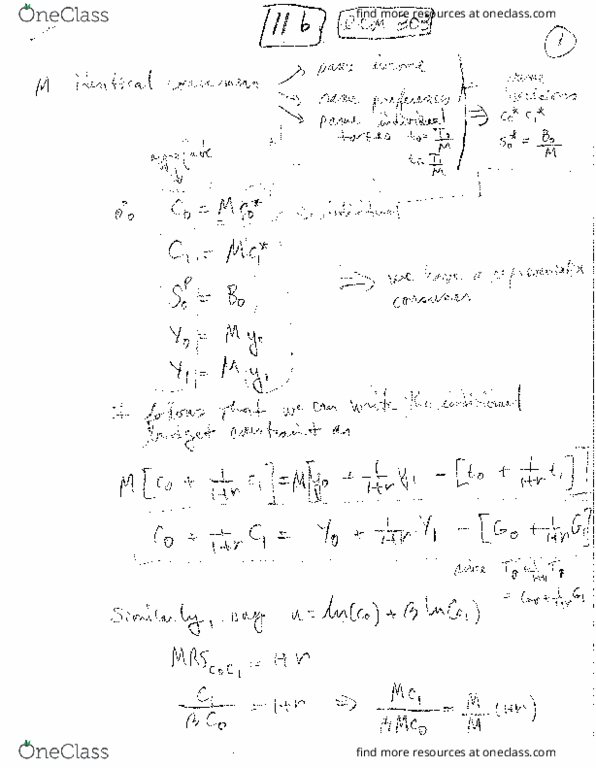 OneClass
find more resources at oneclass.com
11b
1
M identical consumers → same income
→ same preferences
→ same individual taxes t₀ = T₀/M
t₁ = T₁/M
⇒ same decisions
c₀* c₁*
s₀* = B₀/M
aggregate
↓
C₀ = M c₀* individual
C₁ = M c₁*
S₀ᴾ = B₀
⇒ we have a representative consumer
Y₀ = M y₀
Y₁ = M y₁
It follows that we can write the individual
budget constraint as
M[c₀ + 1/(1+r) c₁] = M[y₀ + 1/(1+r) y₁ - [t₀ + 1/(1+r) t₁]]
C₀ + 1/(1+r) C₁ = Y₀ + 1/(1+r) Y₁ - [G₀ + 1/(1+r) G₁]
since T₀ + 1/(1+r) T₁
= G₀ + 1/(1+r) G₁
Similarly, say u = ln(c₀) + β ln(c₁)
MRS c₀c₁ = 1+r
c₁/(βc₀) = 1+r ⇒ Mc₁/(βMc₀) = M/M (1+r)
OneClass
find more resources at oneclass.com